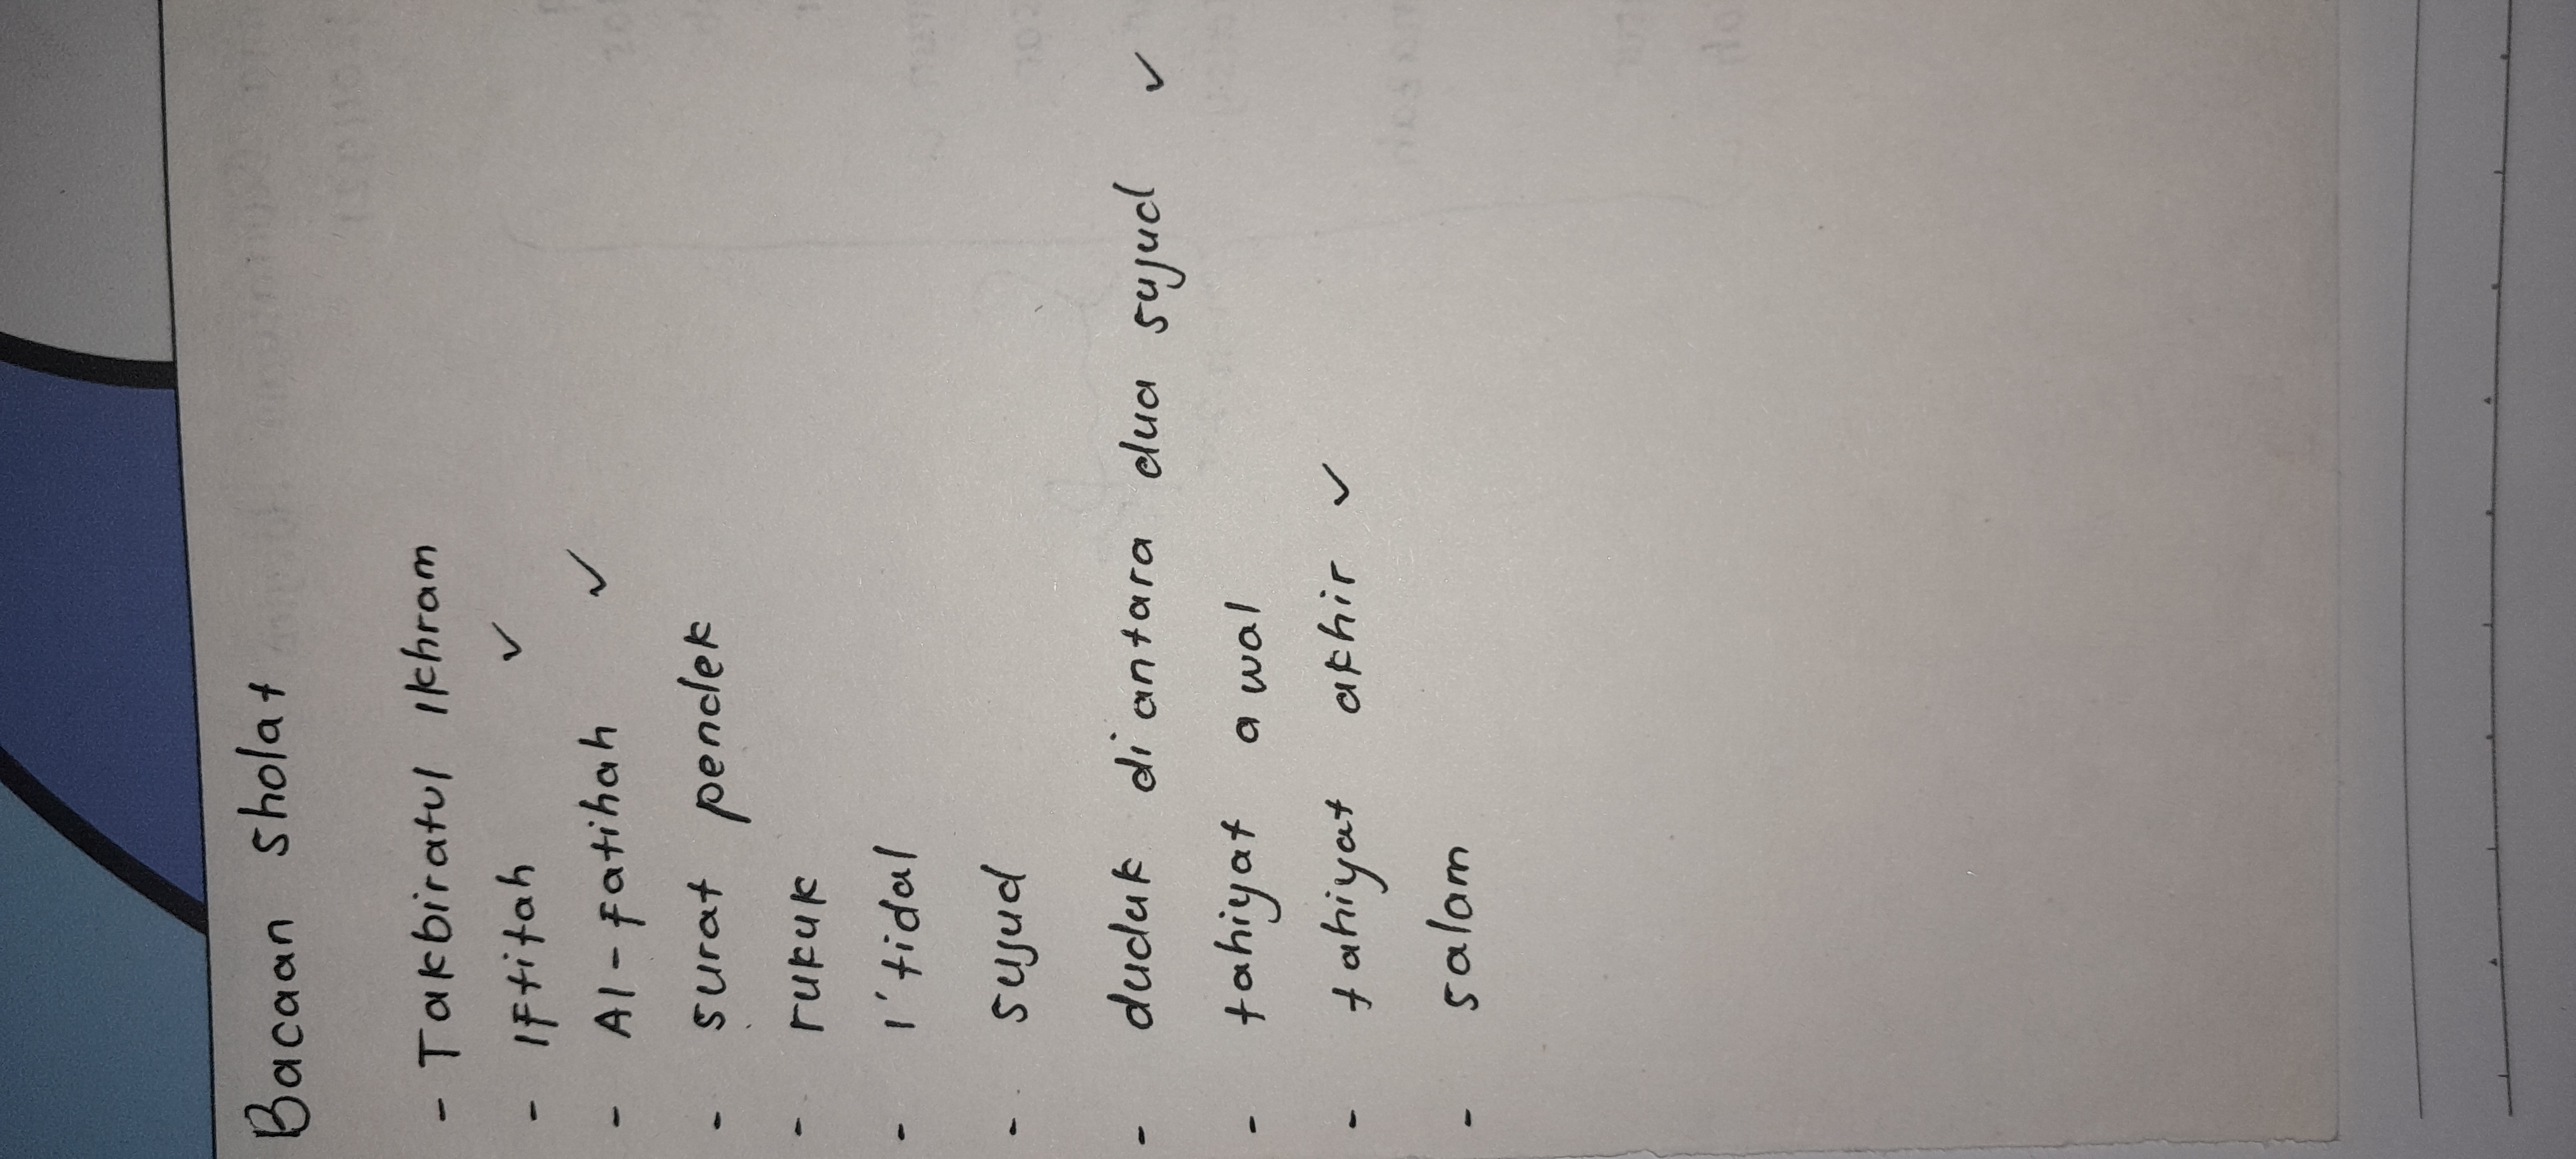 Bacaan Sholat
- Takbiratul Ikhram
- Iftitah ✓
- Al-fatihah ✓
- surat pendek
- rukuk
- i'tidal
- sujud
- duduk di antara dua sujud ✓
- tahiyat awal
- tahiyat akhir ✓
- salam